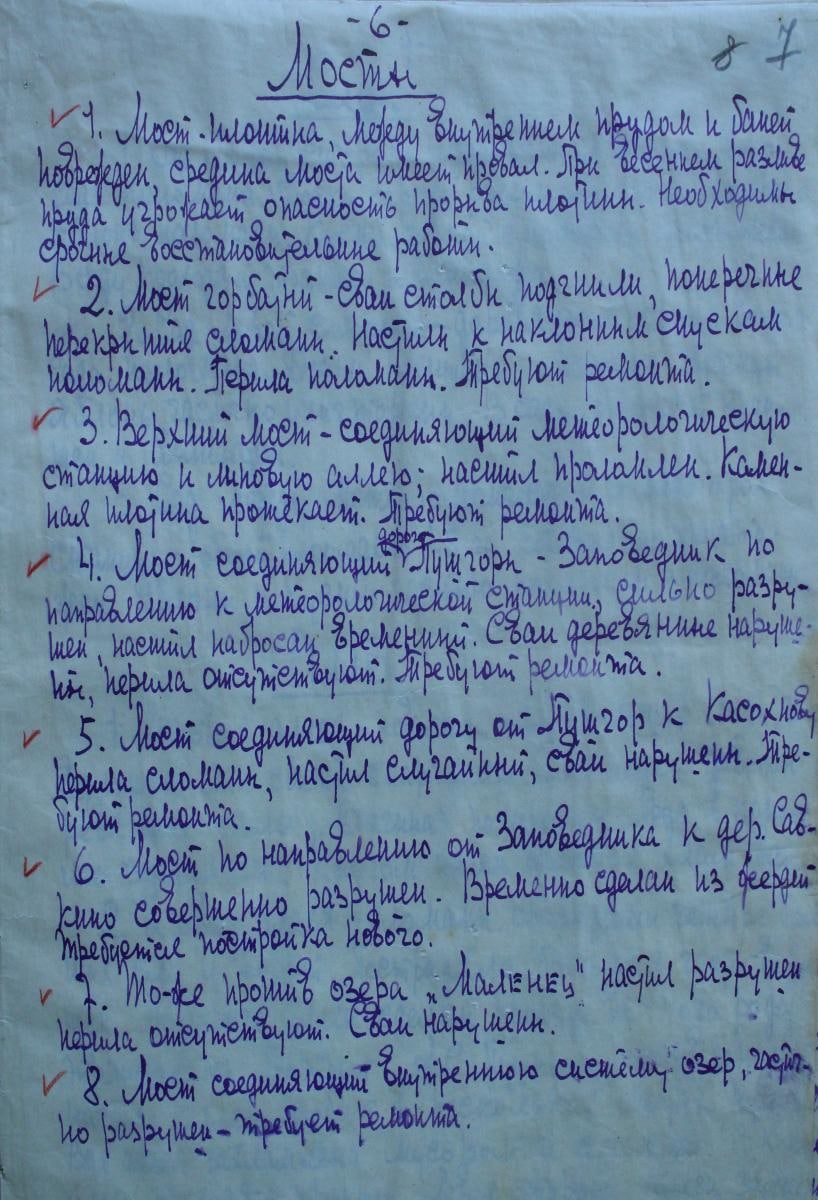 -6-
8 7
Мосты
1. Мост-плотина, между внутреннем прудом и баней
поврежден, средина моста имеет провал. При весеннем разливе
пруда угрожает опасность прорыва плотины. Необходимы
срочные восстановительные работы.
2. Мост горбатый - сваи столбы подгнили, поперечные
перекрытия сломаны. Настилы к наклонным спускам
поломаны. Перила поломаны. Требуют ремонта.
3. Верхний мост - соединяющий метеорологическую
станцию и липовую аллею; настил проломлен. Камен-
ная плотина протекает. Требуют ремонта.
дорогу
4. Мост соединяющий Пушгоры - Заповедник по
направлению к метеорологической станции, сильно разру-
шен, настил набросан временный. Сваи деревянные наруше-
ны, перила отсутствуют. Требуют ремонта.
5. Мост соединяющий дорогу от Пушгор к Касохнову
перила сломаны, настил случайный, сваи нарушены. Тре-
буют ремонта.
6. Мост по направлению от Заповедника к дер. Сав-
кино совершенно разрушен. Временно сделан из жердей
требуется постройка нового.
7. То-же против озера „Маленец" настил разрушен
перила отсутствуют. Сваи нарушены.
8. Мост соединяющий внутреннюю систему озер, частич-
но разрушен - требует ремонта.